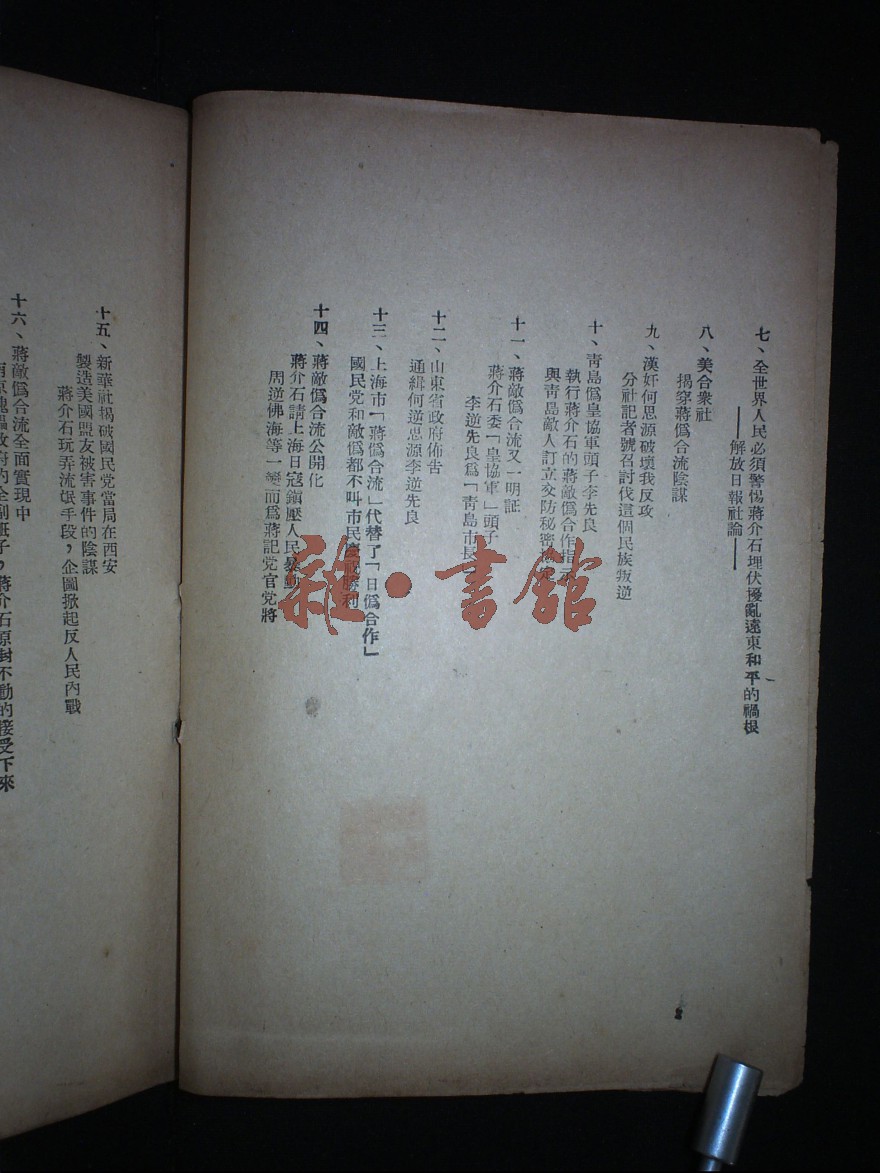 七、全世界人民必須警惕蔣介石埋伏擾亂遠東和平的禍根
——解放日報社論——
八、美合衆社
揭穿蔣僞合流陰謀
九、漢奸何思源破壞我反攻
分社記者號召討伐這個民族叛逆
十、靑島僞皇協軍頭子李先良
執行蔣介石的蔣敵僞合作指示
與靑島敵人訂立交防秘密
十一、蔣敵僞合流又一明証
蔣介石委「皇協軍」頭子
李逆先良爲「靑島市長
十二、山東省政府佈吿
通緝何逆思源李逆先良
十三、上海市「蔣僞合流」代替了「日僞合作」
國民党和敵僞都不叫市民慶祝勝利
十四、蔣敵僞合流公開化
蔣介石請上海日寇鎭壓人民暴動
周逆佛海等一變而爲蔣記党官党將
十五、新華社揭破國民党當局在西安
製造美國盟友被害事件的陰謀
蔣介石玩弄流氓手段，企圖掀起反人民內戰
十六、蔣敵僞合流全面實現中
政府的全副班子，蔣介石原封不動的接受下來
雜·書館